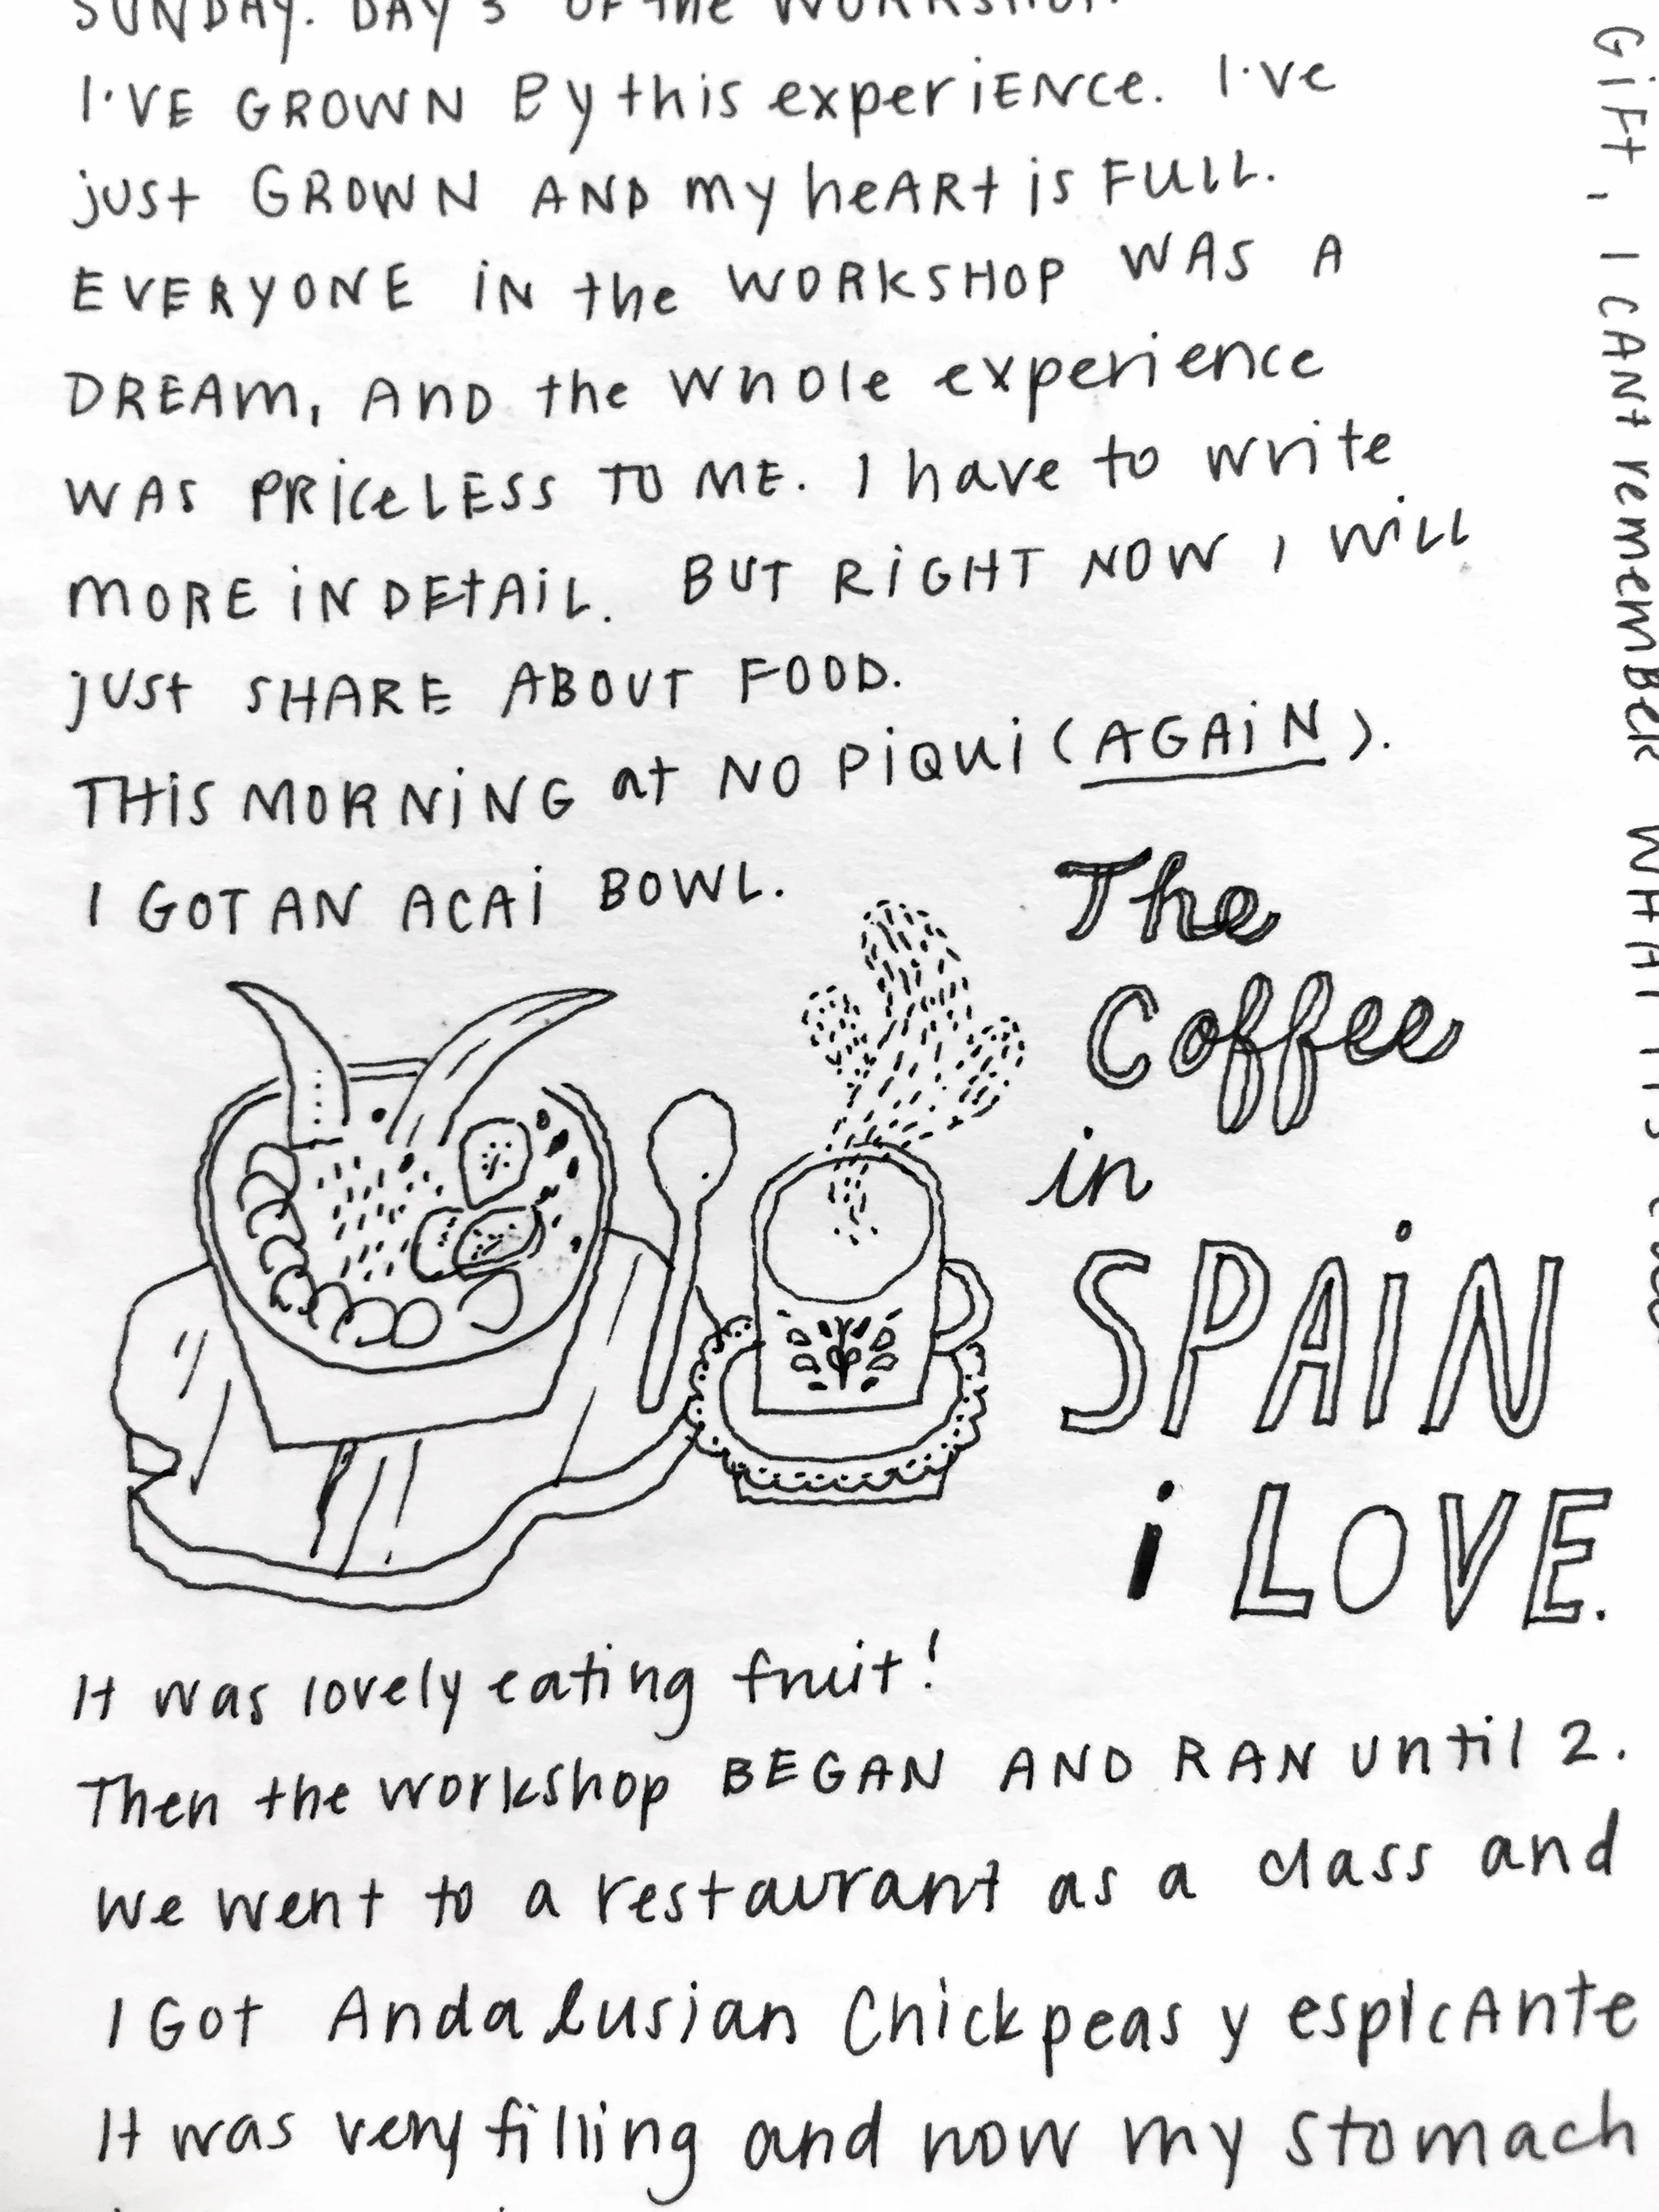 SUNDAY. DAY 3 OF the WORKSHOP.
I'VE GROWN By this experiENce. I've
just GROWN AND my heARt is FULL.
EVERYONE iN the WORKSHOP WAS A
DREAm, AnD the whole experience
WAS PRiceLESS TO ME. I have to write
MORE iN DEtAiL. BUT RiGHT NOW I WiLL
jUSt SHARE ABOUT FOOD.
THiS MORNiNG at NO PiQUi (AGAiN).
I GOT AN ACAi BOWL.
The
Coffee
in
SPAiN
i LOVE.
It was lovely eating fruit!
Then the workshop BEGAN AND RAN until 2.
We went to a restaurant as a class and
I GOt Andalusian Chickpeas y espicAnte
It was very filling and now my stomach
GiFt, I CANt rememBer WHAT IT'S